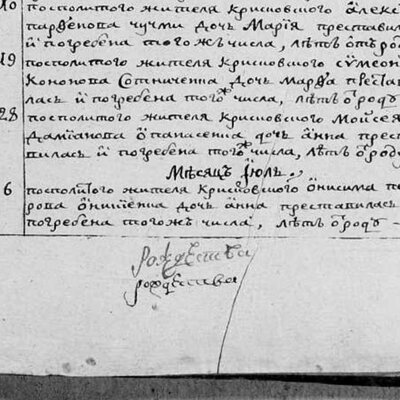 посполитого жителя Крисковского Алекс
Парфенова Чучми дочь Мария преставил
и погребена того жъ числа, лѣтъ отъ
19 посполитого жителя Крисковского Сумеон
Кононова дочь Марфа престав
лась и погребена тогож числа, лѣтъ от роду
28 посполитого жителя Крисковского Мойсея
Дамианова Опанасенка дочь Анна прест
вилась и погребена тогож числа, лѣтъ от роду
Мѣсяцъ Июль.
6 посполитого жителя Крисковского Онисима
рова дочь Анна преставилась
погребена тогожъ числа, лѣтъ от родъ -
рождества
рождества